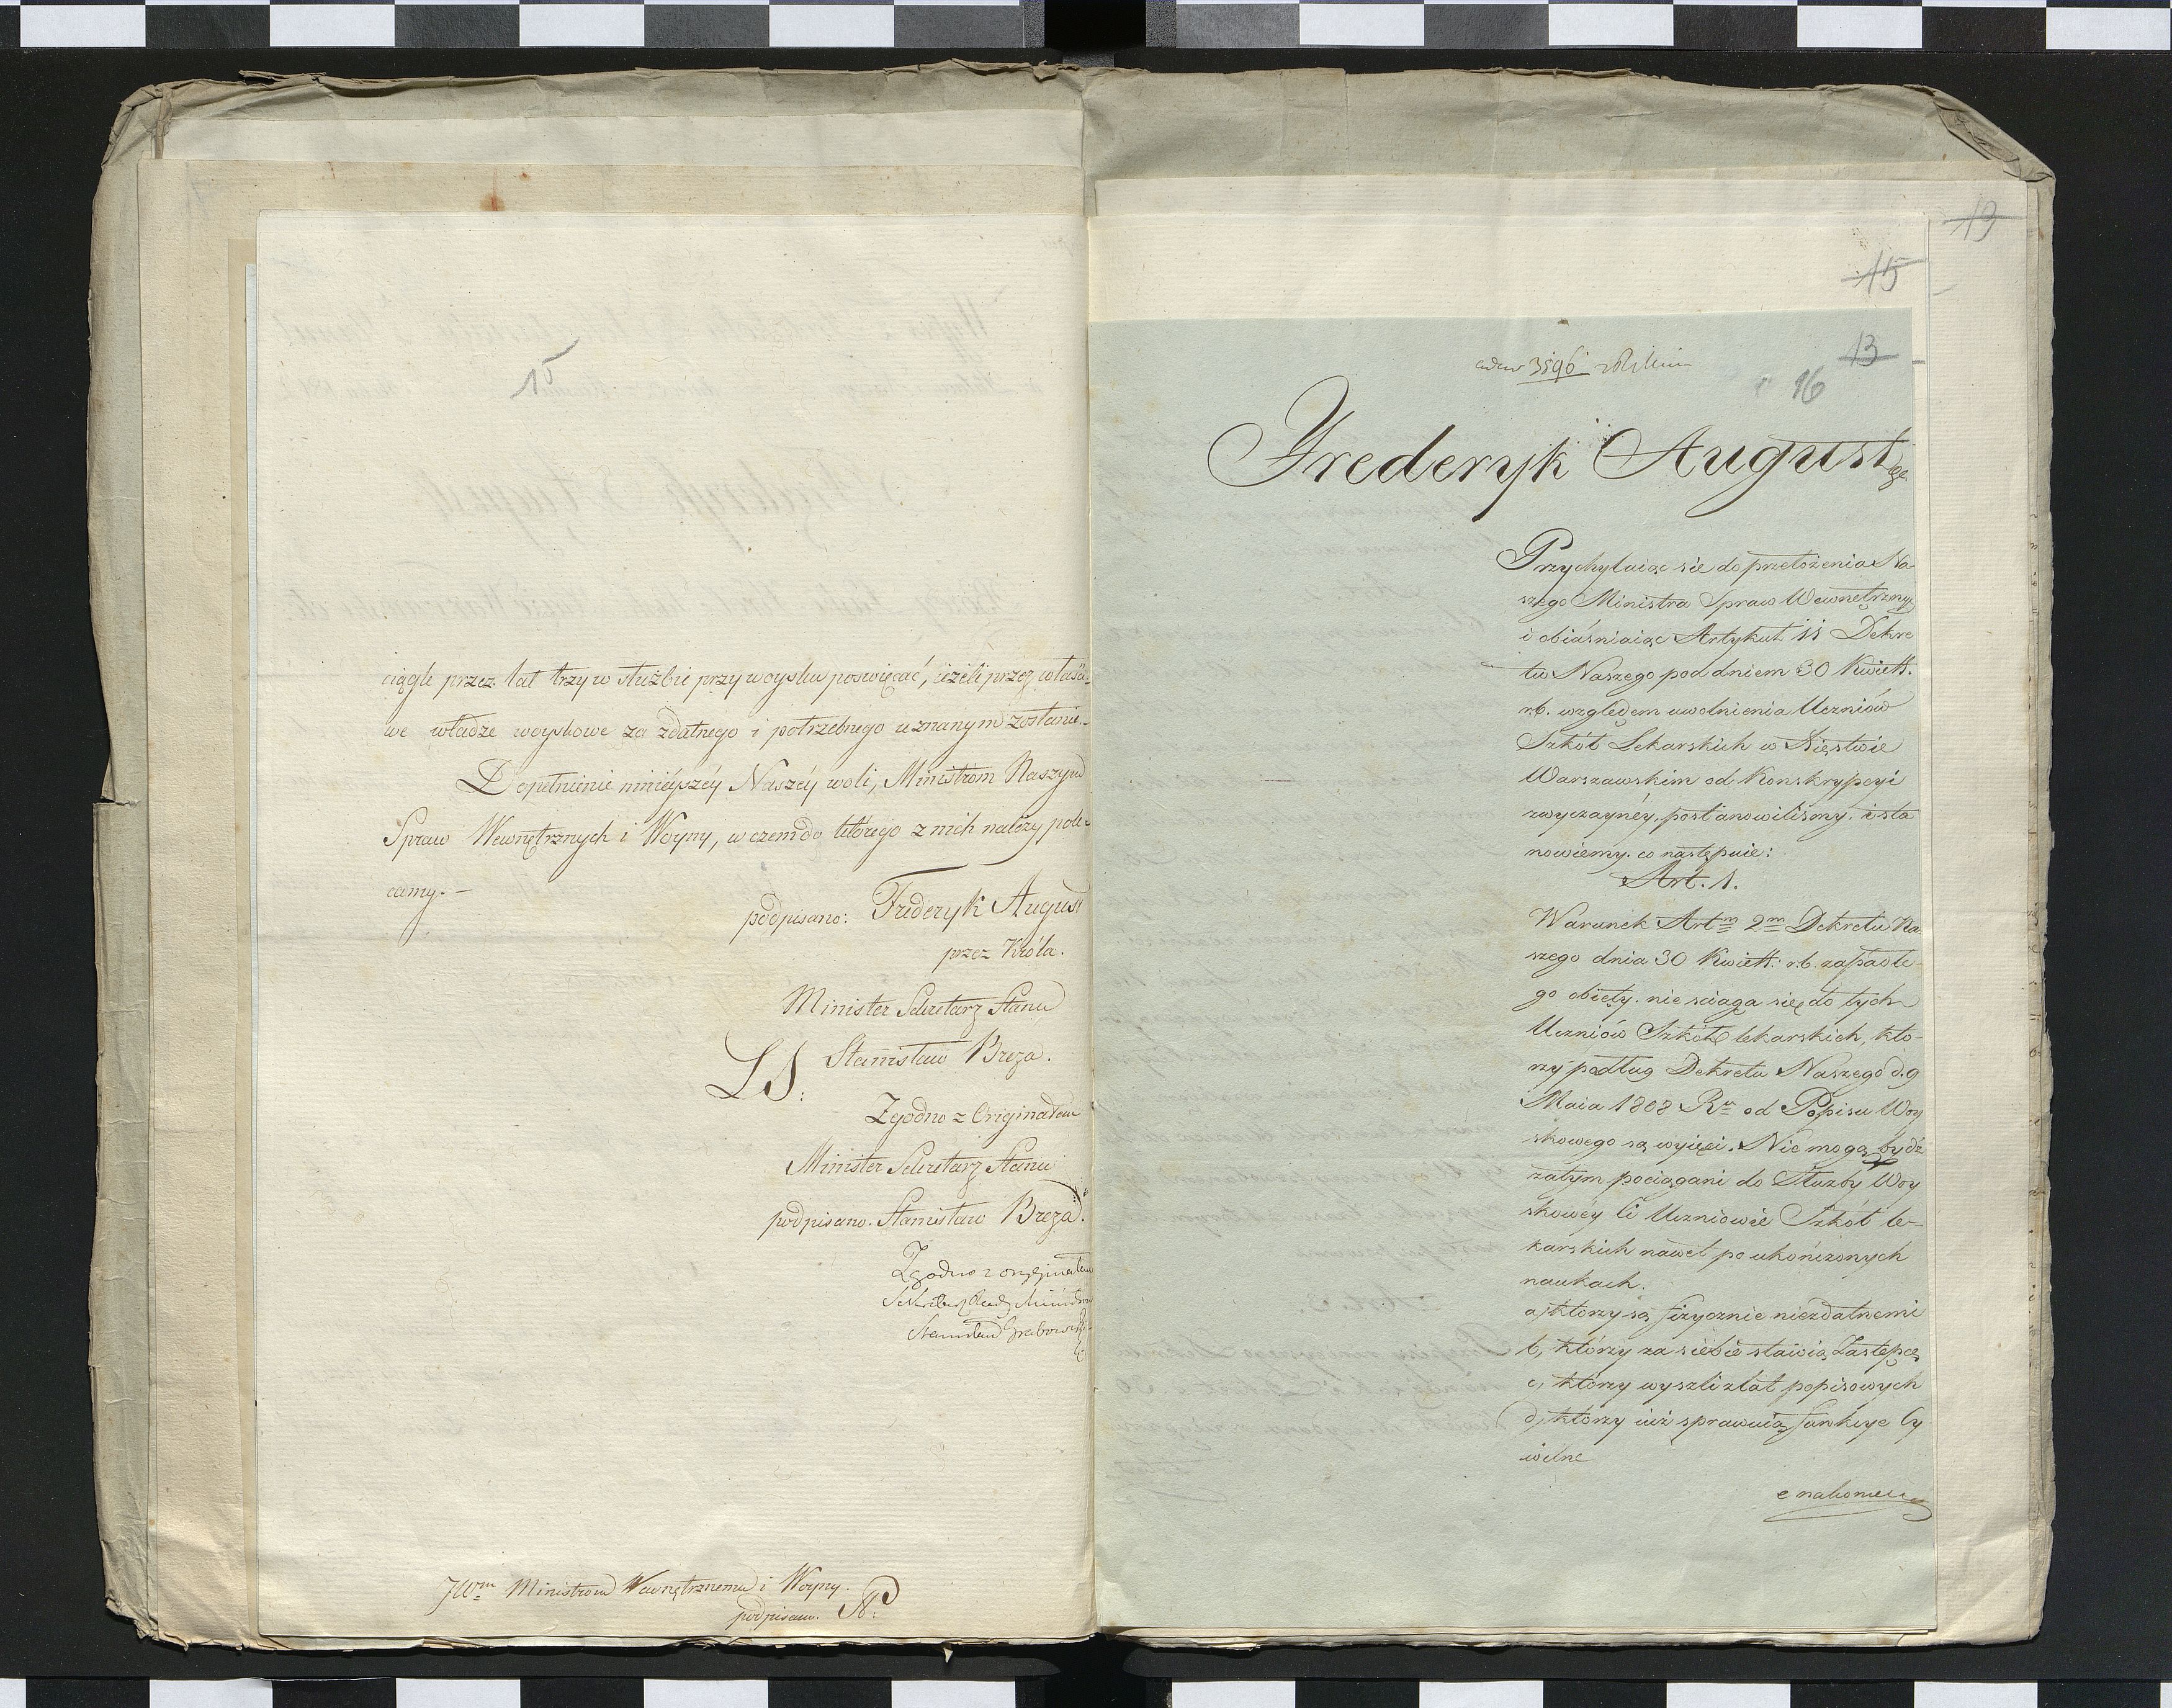 15
ciągle przez lat trzy w służbie przy woysku poswięcać, ieżeli przez właści-
we władze woyskowe za zdatnego i potrzebnego uznanym zostanie.-
Dopełnienie ninieyszey Naszey woli, Ministrom Naszym
Spraw Wewnętrznych i Woyny, w czem do którego z nich należy pole-
camy. -
podpisano: Frideryk August
przez Króla.
Minister Sekretarz Stanu
LS: Stanisław Breza.
Zgodno z Originałem
Minister Sekretarz Stanu
podpisano. Stanisław Breza.
Zgodno z oryginałem
Sekretarz Rady Ministrów
Stanisław Grabowski
JWm Ministrom Wewnętrznemu i Woyny.
podpisano.
19
15
13
3596
16
Frederyk August
Przychylaiąc sie do przełożenia Na
szego Ministra Spraw Wewnętrzny
i obiaśniaiąc Artykuł 11 Dekre
tu Naszego pod dniem 30 Kwiett.
r.b. względem uwolnienia Uczniów
Szkół Lekarskich w Xięstwie
Warszawskim od Konskrypcyi
zwyczayney, postanowiliśmy. i sta
nowiemy. co następuie:
Art. 1.
Warunek Artm 2m Dekretu Na
szego dnia 30 Kwiett: r.b. zapadłe-
go obięty. nie sciąga się do tych
Uczniów Szkół lekarskich, któ-
rzy podług Dekretu Naszego d. 9
Maia 1808 Ru od Popisu Woy
skowego są wyięci. Nie mogą bydź
zatym pociągani do Służby Woy
skowéy Ci Uczniowie Szkół le-
karskich nawet po ukończonych
naukach.
a, ktorzy są fizycznie niezdatnemi
b, którzy za siebie stawią Zastępcę
c, którzy wyszli z lat popisowych
d, którzy iuż sprawuią funkcye Cy
wilne
e nakoniec